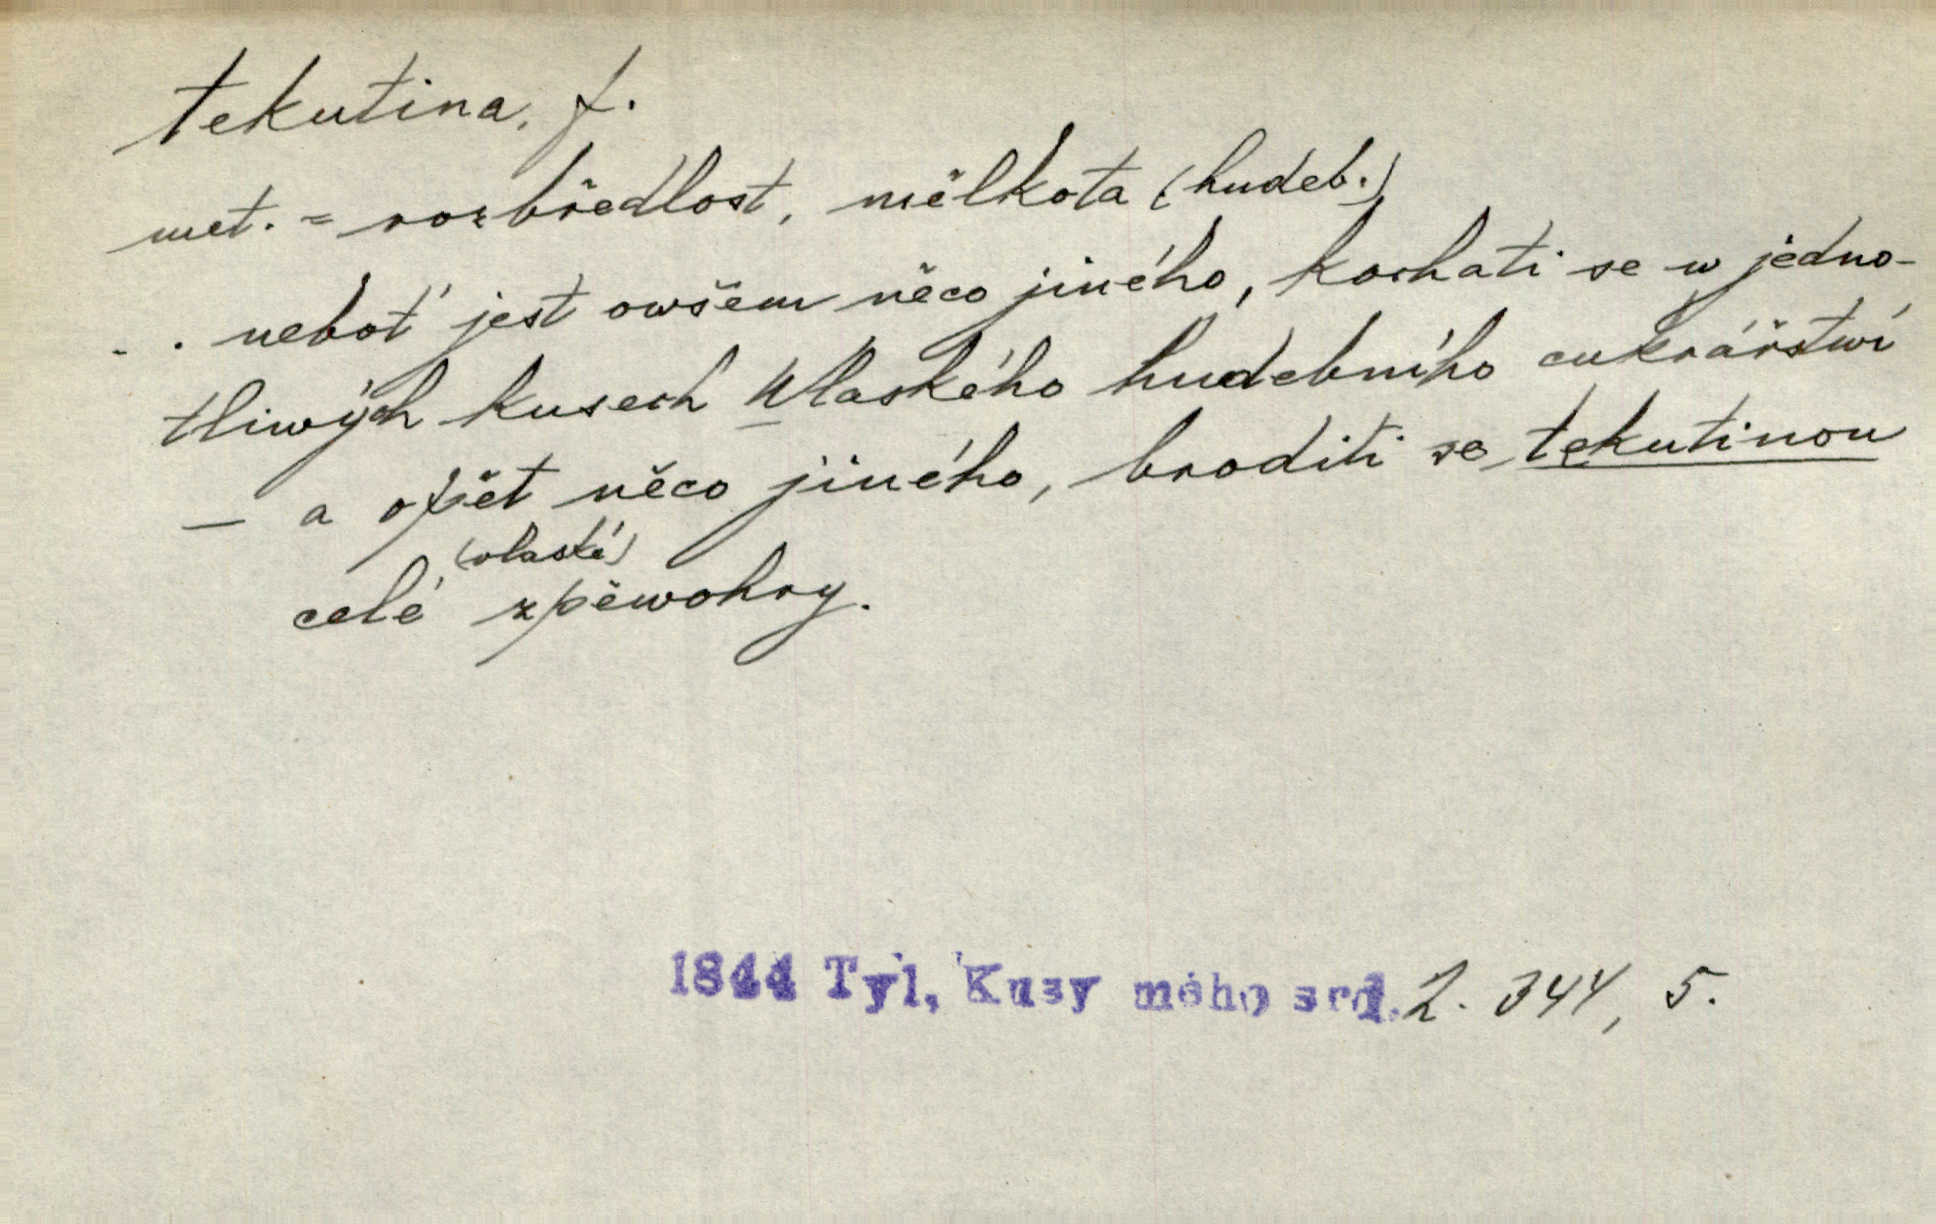 tekutina, f.
met. = rozbředlost, mělkota (hudeb.)
. . neboť jest owšem něco jiného, kochati se w jedno-
tliwých kusech Wlaského hudebního cukrářstwí
— a opět něco jiného, broditi se tekutinou
(vlaské)
celé zpěwohry.
1844 Tyl, Kusy mého srd. 2. 344, 5.